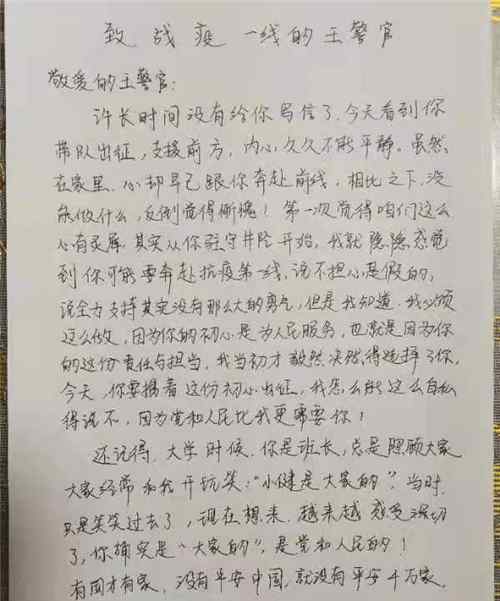 致战疫一线的王警官
敬爱的王警官:
许长时间没有给你写信了,今天看到你
带队出征,支援前方,内心久久不能平静。虽然
在家里,心却早已跟你奔赴前线,相比之下,没
能做什么,反倒觉得惭愧!第一次觉得咱们这么
心有灵犀,其实从你驻守井陉开始,我就隐隐感觉
到你可能要奔赴抗疫第一线,说不担心是假的,
说全力支持其实没有那么大的勇气,但是我知道,我必须
这么做,因为你的初心是为人民服务,也就是因为你
的这份责任与担当,我当初才毅然决然得选择了你,
今天,你要揣着这份初心出征,我怎么能这么自私
得说不,因为党和人民比我更需要你!
还记得,大学时候,你是班长,总是照顾大家
大家经常和我开玩笑:“小健是大家的”?当时
只是笑笑过去了,现在想来,越来越感受深切
了,你确实是“大家的”,是党和人民的!
有国才有家,没有平安中国,就没有平安千万家,